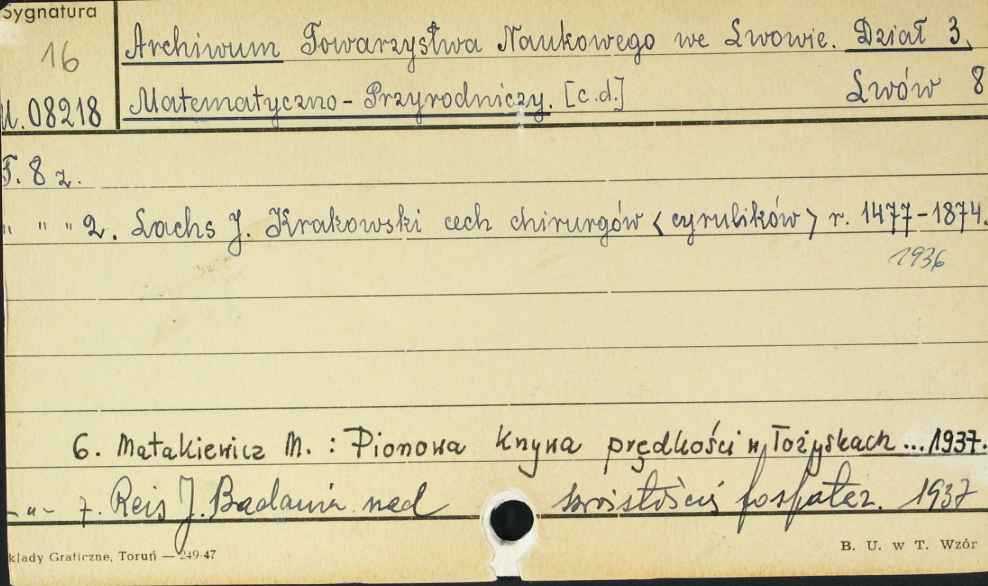 Sygnatura
16
U.08218
Archiwum Towarzystwa Naukowego we Lwowie. Dział 3,
Matematyczno-Przyrodniczy. [c.d.] Lwów 8
T. 8 z.
" " " 2. Lachs J. Krakowski cech chirurgów <cyrulików> r. 1477-1874.
1936
6. Matakiewicz M. : Pionowa knywa prędkości w łożyskach ... 1937.
-"- 7. Reis J. Badania nad fosfatez. 1937
kłady Graficzne, Toruń — 249-47
B. U. w T. Wzór